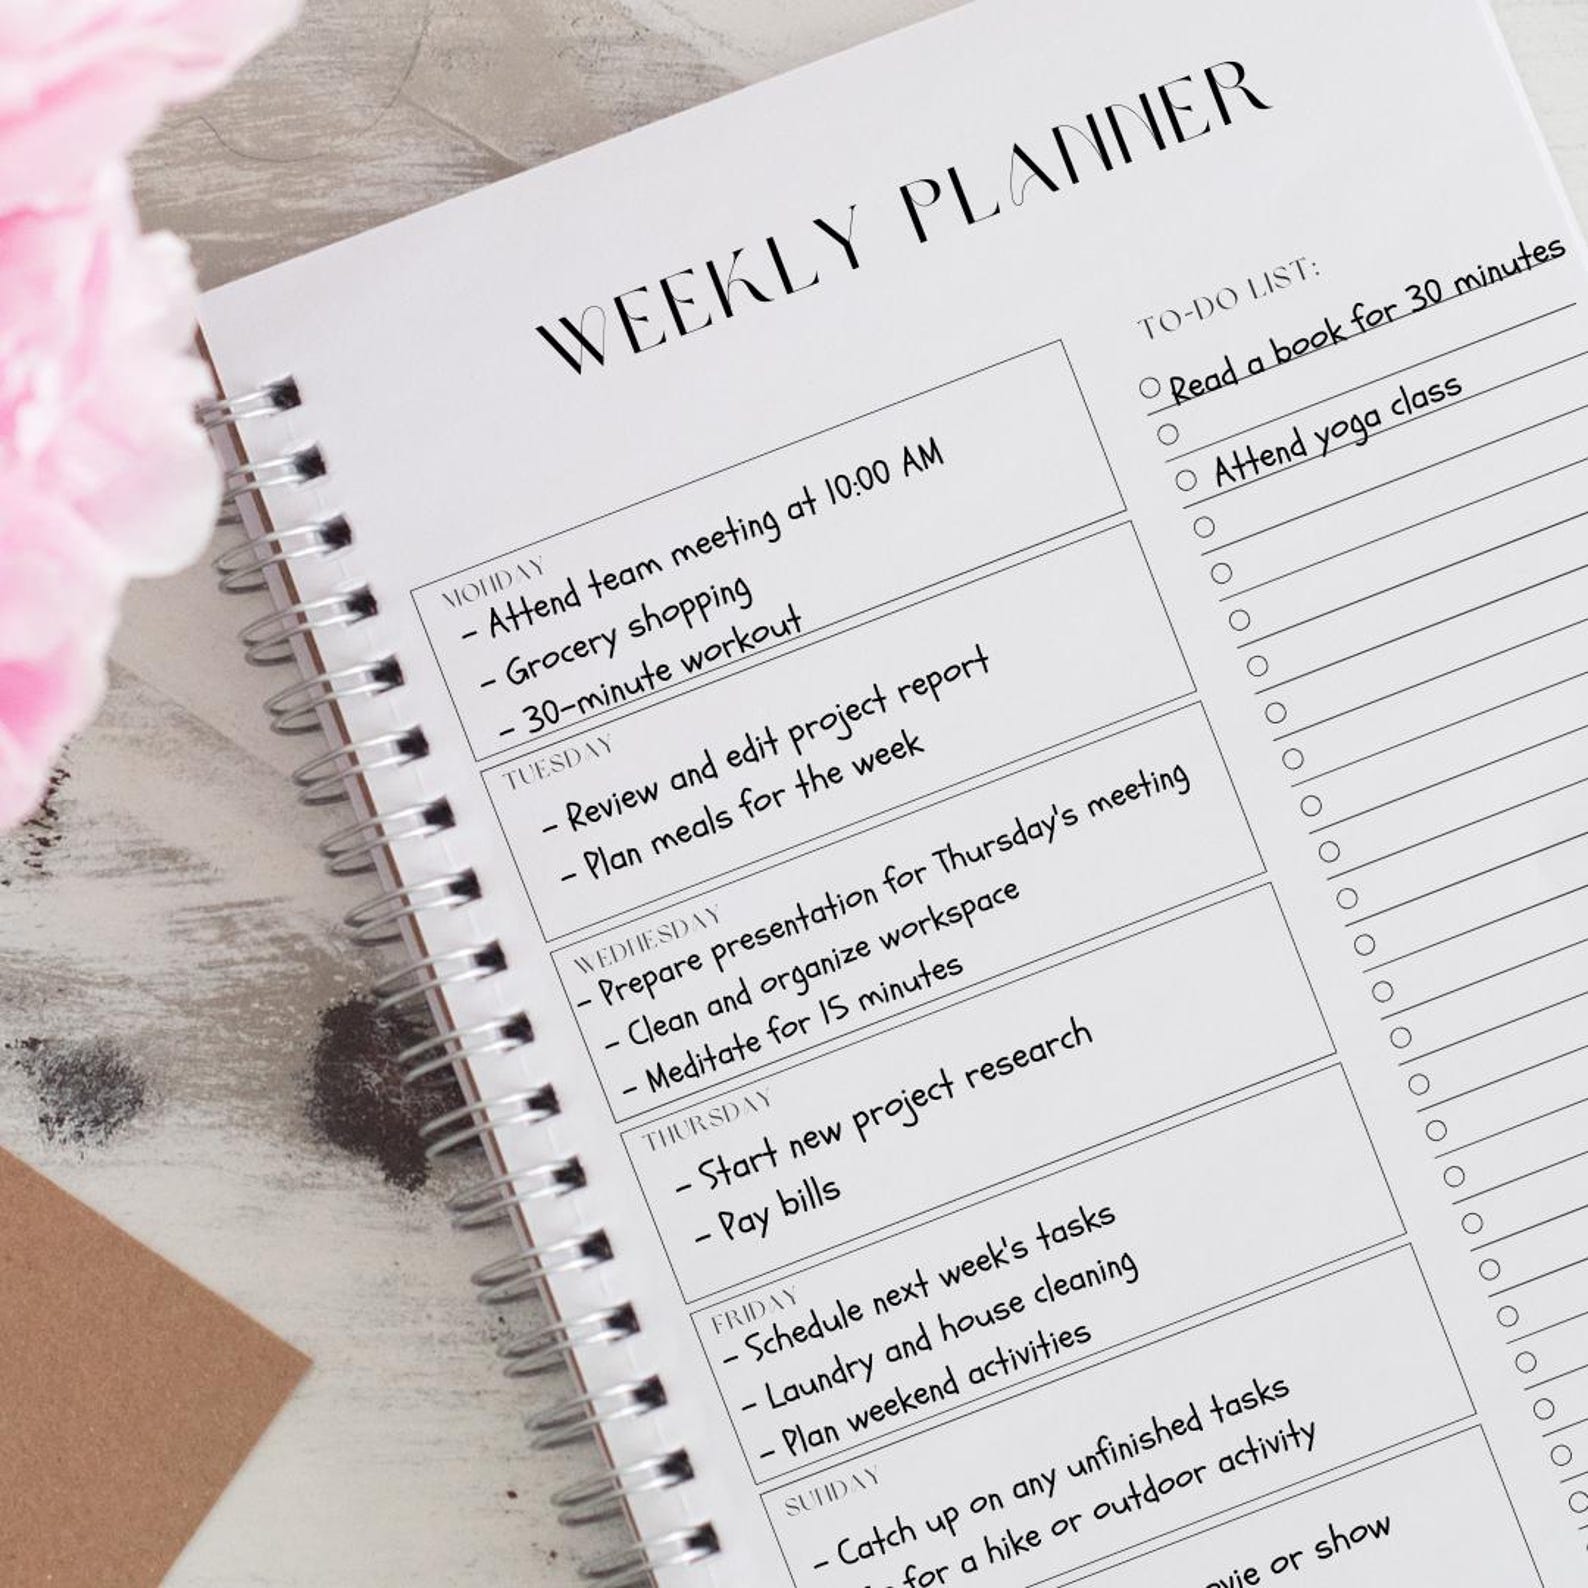 WEEKLY PLANNER
MONDAY
- Attend team meeting at 10:00 AM
- Grocery shopping
- 30-minute workout
TUESDAY
- Review and edit project report
- Plan meals for the week
WEDNESDAY
- Prepare presentation for Thursday's meeting
- Clean and organize workspace
- Meditate for 15 minutes
THURSDAY
- Start new project research
- Pay bills
FRIDAY
- Schedule next week's tasks
- Laundry and house cleaning
- Plan weekend activities
SUNDAY
- Catch up on any unfinished tasks
for a hike or outdoor activity
or show
TO-DO LIST:
Read a book for 30 minutes
Attend yoga class